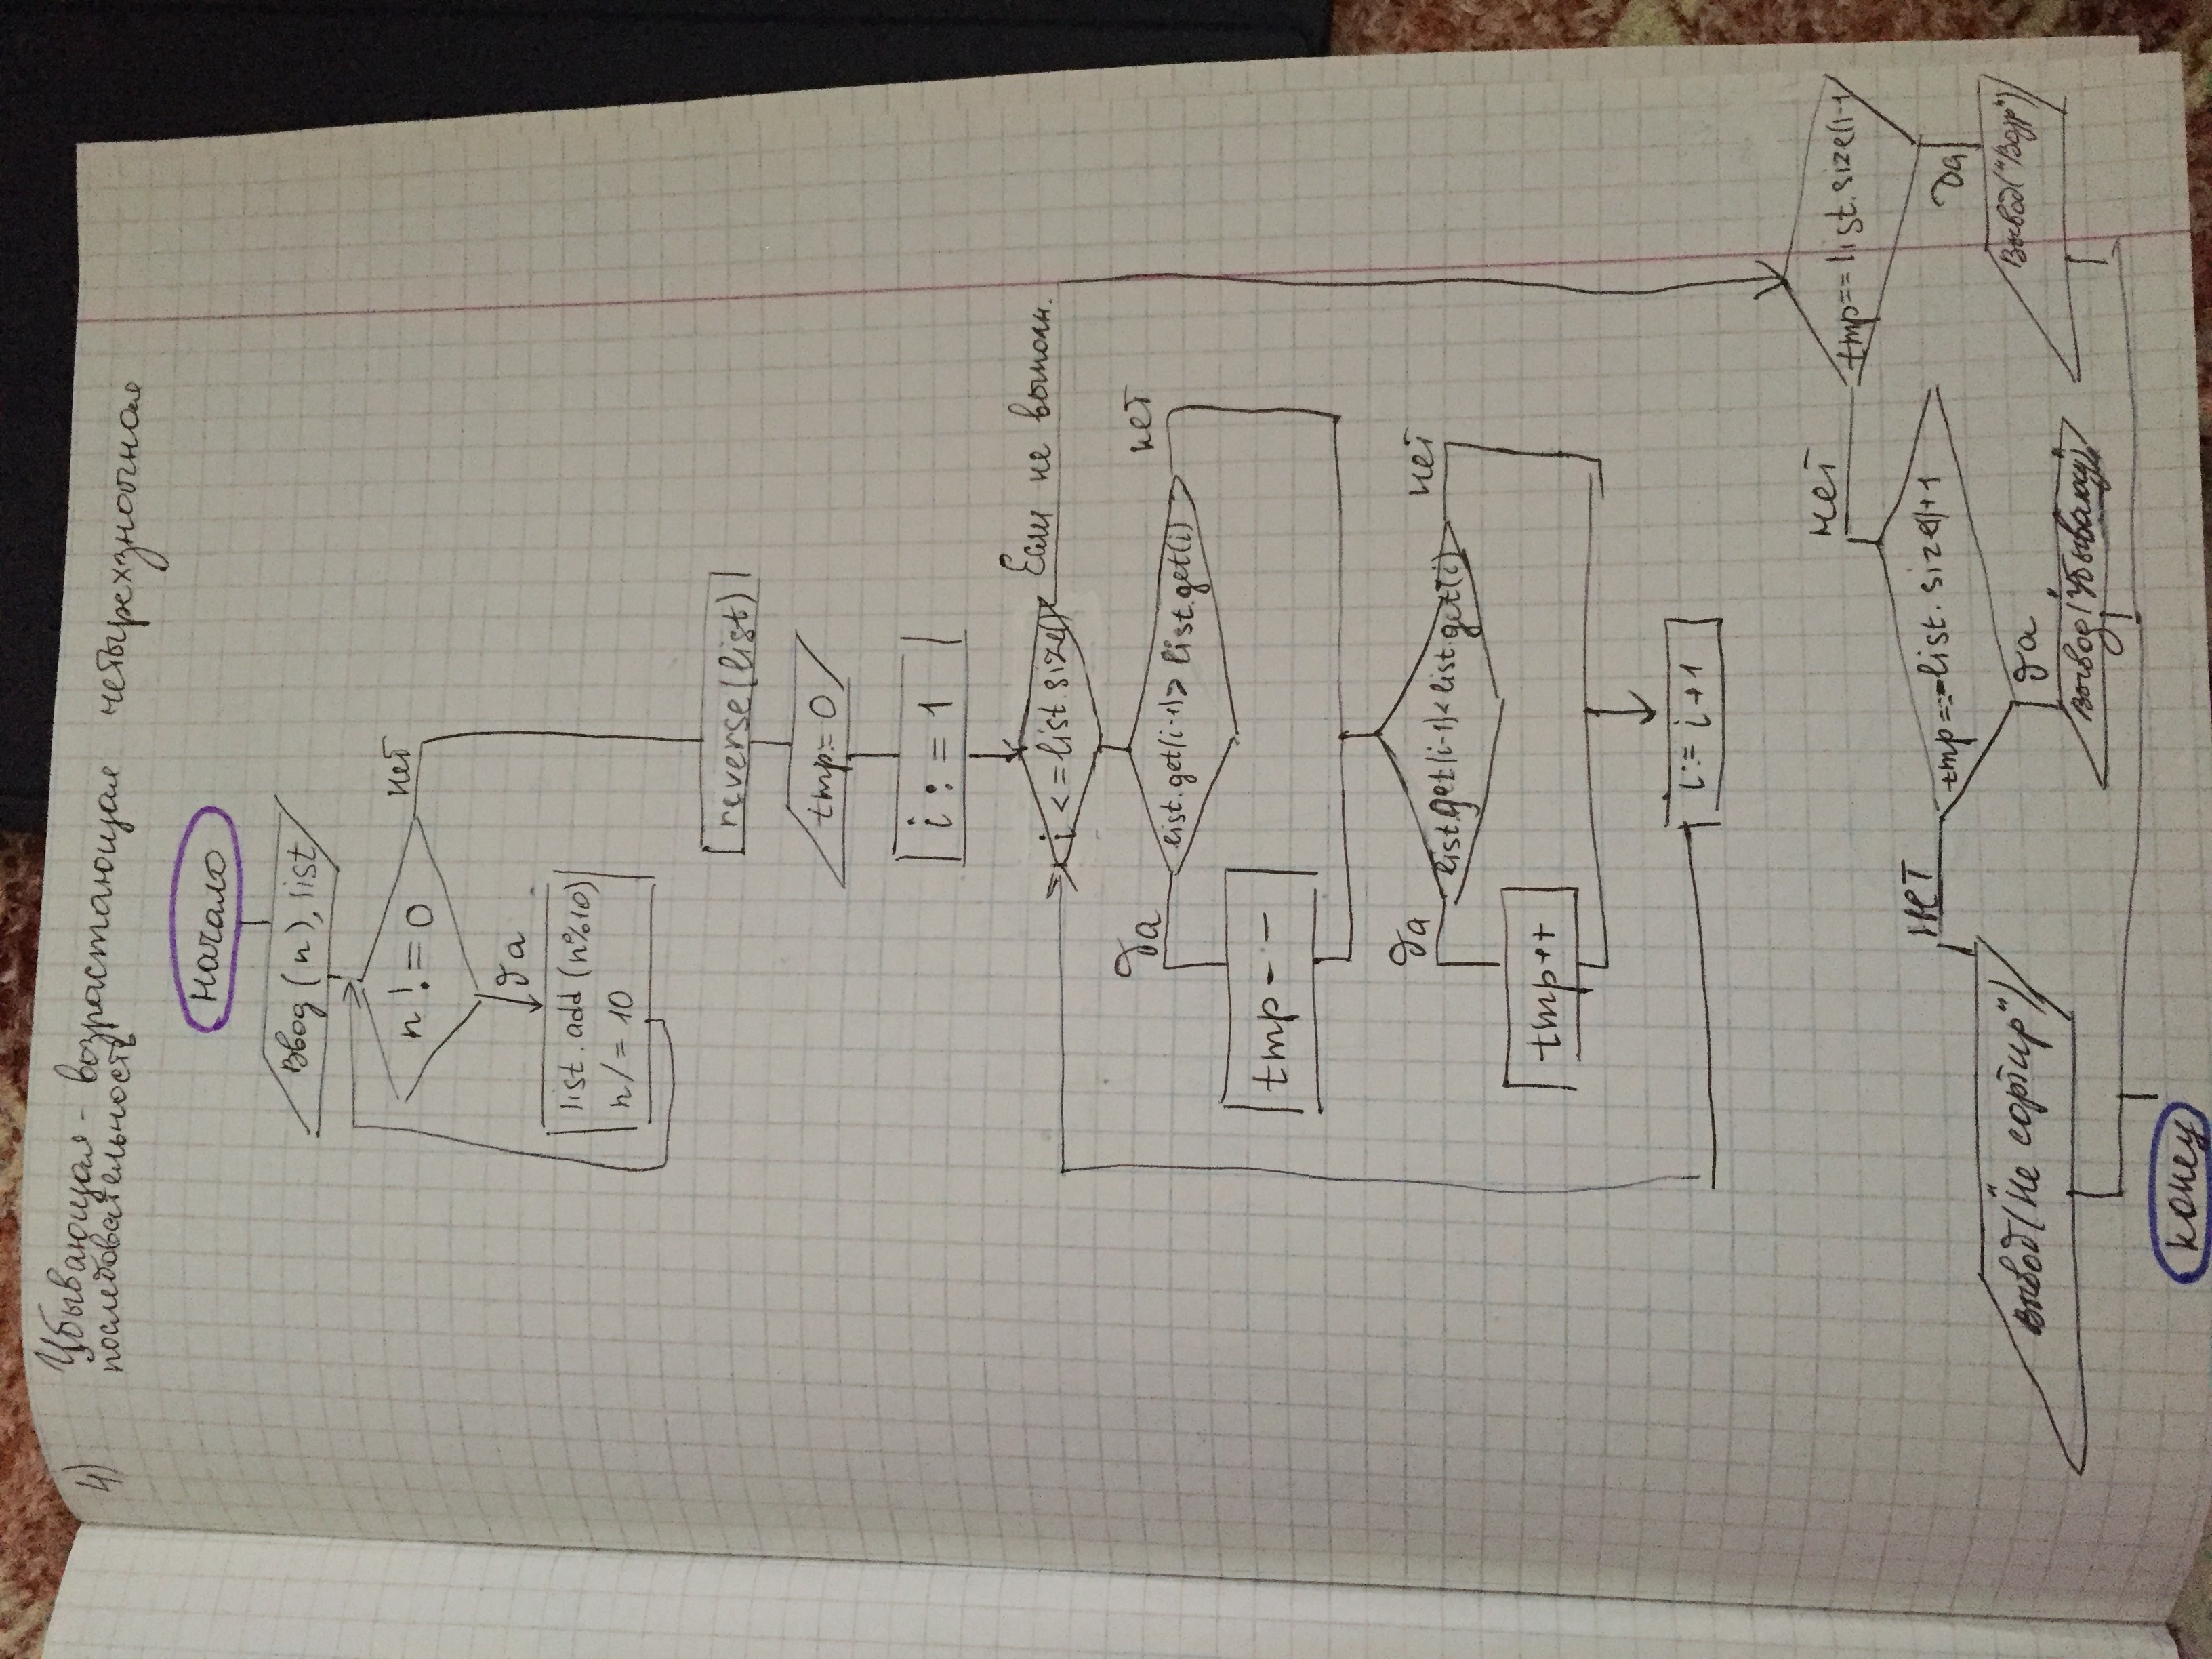 4) Убывающая - возрастающая четырехзначная
последовательность
начало
Ввод (n), list
n != 0
нет
да
list.add (n%10)
n/= 10
reverse(list)
tmp:= 0
i := 1
i <= list.size()
Если не выполн.
да
нет
list.get(i-1)> list.get(i)
tmp--
да
нет
list.get(i-1)<list.get(i)
tmp++
i:= i+1
нет
tmp==list.size()-1
нет
tmp==-list.size()+1
да
Вывод("Не сортир")
да
Вывод("Возр")
Вывод("Убывающ")
конец